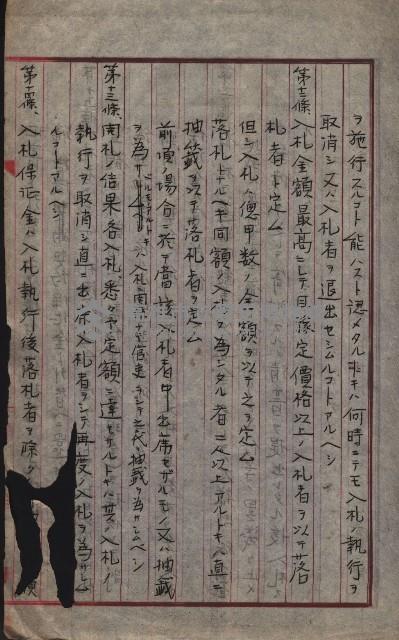 ヲ施行スルコト能ハスト認メタルトキハ何時ニテモ入札ノ執行ヲ
取消シ又ハ入札者ヲ退出セシムルコトアルヘシ
第十二條、入札金額最高ニシテ且豫定價格以上ノ入札者ヲ以テ落
札者ト定ム
但シ入札ハ總甲数ノ金額ヲ以テ之ヲ定ム
落札トナルヘキ同額ノ入札ヲ為シタル者二人以上アルトキハ直ニ
抽籤ヲ以テ落札者ヲ定ム
前項ノ場合ニ於テ當該入札者中出席セザルモノ又ハ抽籤
ヲ為サヾルモノアルトキハ入札関係ナキ官吏ヲシテ之ニ代リ抽籤ヲ為サシムヘシ
第十三條、開札ノ結果各入札悉ク予定額ニ達セザルトキハ其ノ入札ノ
執行ヲ取消シ直ニ出席入札者ヲシテ再度ノ入札ヲ為サシム
ルコトアルヘシ
第十四條、入札保証金ハ入札執行後落札者ヲ除ク